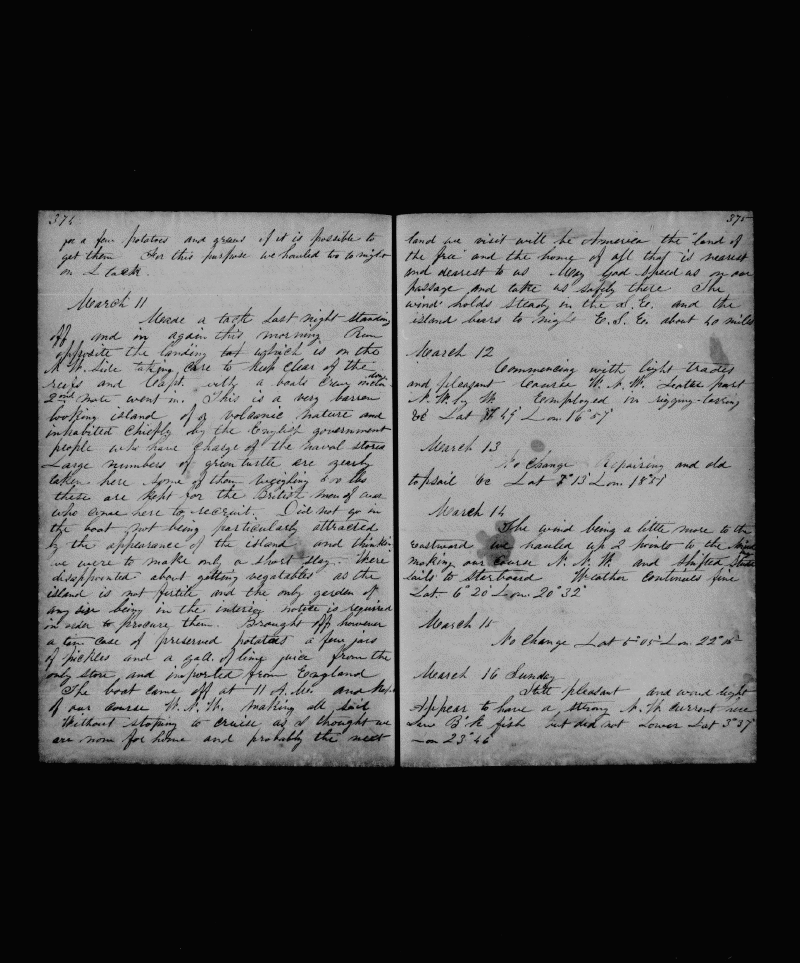 374
for a few potatoes and greens if it is possible to
get them For this purpose we hauled too to night
on L tack.
March 11
Made a tack last night standing
off and in again this morning Run
opposite the landing which is on the
N. W. Side taking care to keep clear of the
reefs and Capt. with a boats crew
2nd mate went in. This is a very barren
looking island of a volcanic nature and
inhabited chiefly by the English government
people who have charge of the naval stores
Large numbers of green turtle are yearly
taken here some of them weighing 600 lbs
these are kept for the British men of war
who come here to recruit. Did not go in
the boat not being particularly attracted
by the appearance of the island and thinking
we were to make only a short stay. Were
disappointed about getting vegatables as the
island is not fertile and the only garden of
any size being in the interior notice is required
in order to procure them. Brought off however
a tin case of preserved potatoes a few jars
of pickles and a gall. of lime juice from the
only store and imported from England
The boat came off at 11 A. M. and kept
of our course W. N. W. making all sail
Without stoping to cruise as I thought we
are now for home and probably the next
375
land we visit will be America the "land of
the free" and the home of all that is nearest
and dearest to us May God speed us on our
passage and take us safely there The
wind holds steady in the S. E. and the
island bears to night E. S. E. about 40 miles
March 12
Commencing with light trades
and pleasant Course W. N. W. Latter part
N. W. by W. Employed in rigging-
&c Lat 7° 49' Lon 16° 57'
March 13
No change Repairing and old
topsail &c Lat 7° 13' Lon. 18° 51'
March 14
The wind being a little more to the
Eastward we hauled up 2 points to the
making our course N. N. W. and shifted
sails to starboard Weather continues fine
Lat. 6° 20' Lon. 20° 32'
March 15
No change Lat 5° 05' Lon. 22°
March 16 Sunday
Still pleasant and wind light
Appear to have a strong N. W. current here
Saw B'k fish but did not lower Lat 3° 37'
Lon 23° 46'